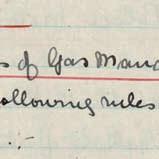 of Gas
following rules